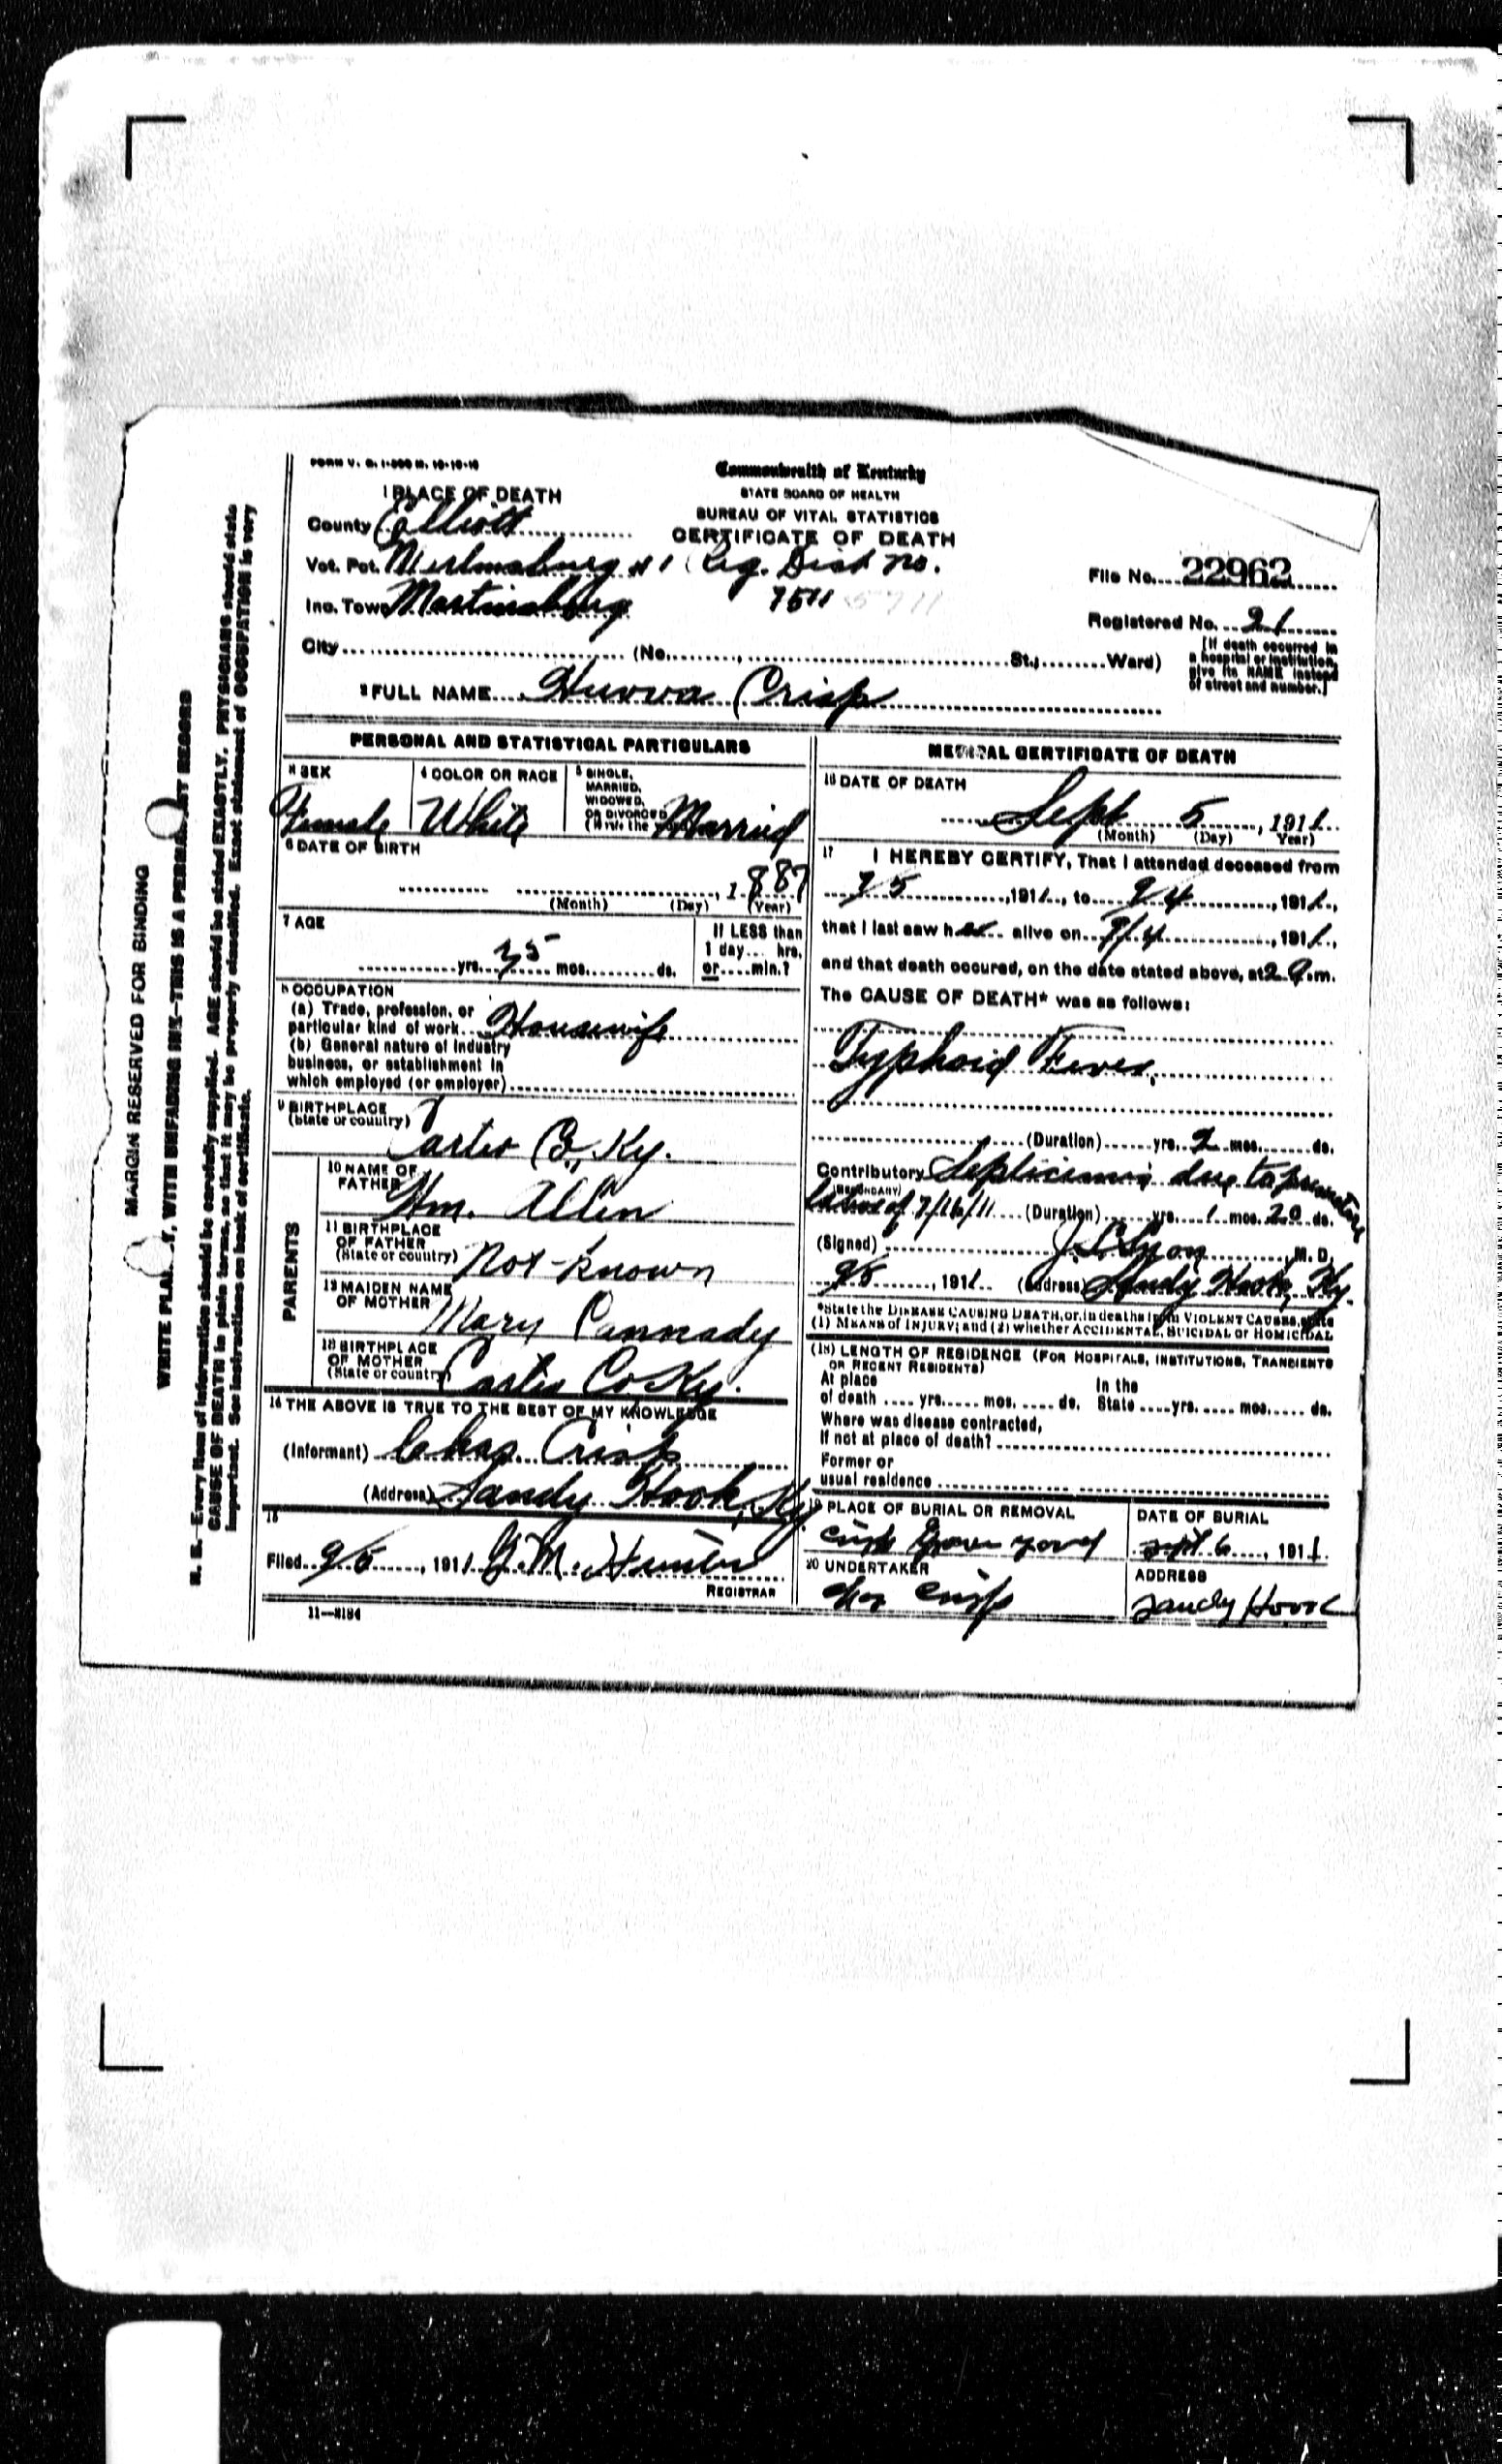 FORM V. S. 1-200 M. 10-10-10
Commonwealth of Kentucky
STATE BOARD OF HEALTH
BUREAU OF VITAL STATISTICS
CERTIFICATE OF DEATH
1 PLACE OF DEATH
County Elliott
Vot. Pct. #1 Reg. Dist No.
Inc. Town Martinsburg 7511 5711
File No. 22962
Registered No. 21
City (No. , St.; Ward)
[If death occurred in
a hospital or institution,
give its NAME instead
of street and number.]
2 FULL NAME Crisp
PERSONAL AND STATISTICAL PARTICULARS
3 SEX
Female
4 COLOR OR RACE
White
5 SINGLE,
MARRIED,
WIDOWED,
OR DIVORCED
(Write the Married
6 DATE OF BIRTH
, 1887
(Month) (Day) (Year)
7 AGE
25
yrs. mos. ds.
If LESS than
1 day... hrs.
or....min.?
8 OCCUPATION
(a) Trade, profession, or
particular kind of work Housewife
(b) General nature of industry
business, or establishment in
which employed (or employer)
9 BIRTHPLACE
(State or country)
Carter Co, Ky.
PARENTS
10 NAME OF
FATHER
Wm. Allen
11 BIRTHPLACE
OF FATHER
(State or country) Not-Known
12 MAIDEN NAME
OF MOTHER
Mary Cannady
13 BIRTHPLACE
OF MOTHER
(State or country) Carter Co Ky.
14 THE ABOVE IS TRUE TO THE BEST OF MY KNOWLEDGE
(Informant) Chas. Crisp
(Address) Sandy Hook, Ky.
15
Filed , 1911 G. M. Hunter
REGISTRAR
11—3184
MEDICAL CERTIFICATE OF DEATH
16 DATE OF DEATH
Sept 5, 1911
(Month) (Day) Year)
17 I HEREBY CERTIFY, That I attended deceased from
7/5, 1911., to 9/4, 1911.,
that I last saw her alive on 9/4, 1911.,
and that death occured, on the date stated above, at 2 m.
The CAUSE OF DEATH* was as follows:
Typhoid Fever.
(Duration) yrs. 2 mos. ds.
Contributory Septicimia due to premature
(SECONDARY)
7/16/11 (Duration) yrs. 1 mos. 20 ds.
(Signed) Lyon, M. D.
, 1911. (Address) Sandy Hook, Ky.
*State the DISEASE CAUSING DEATH, or, in deaths from VIOLENT CAUSES, state
(1) MEANS of INJURY; and (2) whether ACCIDENTAL, SUICIDAL or HOMICIDAL
(18) LENGTH OF RESIDENCE (FOR HOSPITALS, INSTITUTIONS, TRANCIENTS
OR RECENT RESIDENTS)
At place In the
of death .... yrs..... mos. .... ds. State ....yrs..... mos..... ds.
Where was disease contracted,
If not at place of death?
Former or
usual residence
19 PLACE OF BURIAL OR REMOVAL
Crisp Grave yard
DATE OF BURIAL
Sept 6, 1911.
20 UNDERTAKER
Crisp
ADDRESS
Sandy Hook
MARGIN RESERVED FOR BINDING
WRITE PLA , WITH UNFADING INK—THIS IS A PERMA T RECORD
N. B.—Every item of information should be carefully supplied. AGE should be stated EXACTLY. PHYSICIANS should state
CAUSE OF DEATH in plain terms, so that it may be properly classified. Exact statement of OCCUPATION is very
important. See instructions on back of certificate.